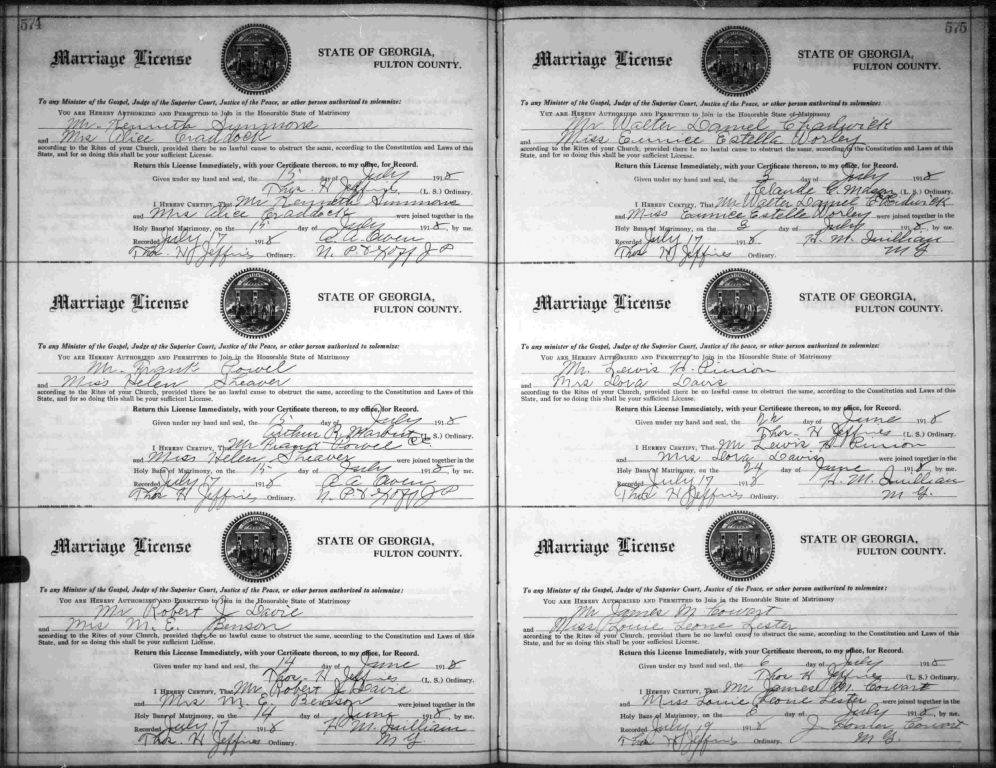 574
Marriage License
STATE OF GEORGIA,
FULTON COUNTY.
To any Minister of the Gospel, Judge of the Superior Court, Justice of the Peace, or other person authorized to solemnize:
YOU ARE HEREBY AUTHORIZED AND PERMITTED to Join in the Honorable State of Matrimony
Mr. Kenneth Simmons
and Mrs Alice Craddock
according to the Rites of your Church, provided there be no lawful cause to obstruct the same, according to the Constitution and Laws of this
State, and for so doing this shall be your sufficient License.
Return this License Immediately, with your Certificate thereon, to my office, for Record.
Given under my hand and seal, the 15 day of July 1918
Thos. H Jeffries (L. S.) Ordinary.
I HEREBY CERTIFY, That Mr Kenneth Simmons
and Mrs Alice Craddock were joined together in the
Holy Bans of Matrimony, on the 15 day of July 1918, by me.
Recorded July 17 1918 A A Owen
Thos. H Jeffries Ordinary. N. P. & Exoff J P
Marriage License
STATE OF GEORGIA,
FULTON COUNTY.
To any Minister of the Gospel, Judge of the Superior Court, Justice of the Peace, or other person authorized to solemnize:
YOU ARE HEREBY AUTHORIZED AND PERMITTED to Join in the Honorable State of Matrimony
Mr. Frank Powel
and Miss Helen Sheaver
according to the Rites of your Church, provided there be no lawful cause to obstruct the same, according to the Constitution and Laws of this
State, and for so doing this shall be your sufficient License.
Return this License Immediately, with your Certificate thereon, to my office, for Record.
Given under my hand and seal, the 15 day of July 1918
Arthur R. (L. S.) Ordinary.
I HEREBY CERTIFY, That Mr Frank Powel
and Miss Helen Sheaver were joined together in the
Holy Bans of Matrimony, on the 15 day of July 1918, by me.
Recorded July 17 1918 A A Owen
Thos H Jeffries Ordinary. N. P. & Exoff J P
Marriage License
STATE OF GEORGIA,
FULTON COUNTY.
To any Minister of the Gospel, Judge of the Superior Court, Justice of the Peace, or other person authorized to solemnize:
YOU ARE HEREBY AUTHORIZED AND PERMITTED to Join in the Honorable State of Matrimony
Mr Robert J. Davie
and Mrs M. E. Benson
according to the Rites of your Church, provided there be no lawful cause to obstruct the same, according to the Constitution and Laws of this
State, and for so doing this shall be your sufficient License.
Return this License Immediately, with your Certificate thereon, to my office, for Record.
Given under my hand and seal, the 14 day of June 1918
Thos. H Jeffries (L. S.) Ordinary.
I HEREBY CERTIFY, That Mr Robert J Davie
and Mrs M E Benson were joined together in the
Holy Bans of Matrimony, on the 14 day of June 1918, by me.
Recorded July 17 1918 H M Quillian
Thos. H Jeffries Ordinary. M G
575
Marriage License
STATE OF GEORGIA,
FULTON COUNTY.
To any Minister of the Gospel, Judge of the Superior Court, Justice of the Peace, or other person authorized to solemnize:
YOU ARE HEREBY AUTHORIZED AND PERMITTED to Join in the Honorable State of Matrimony
Mr Walter Daniel Chadwick
and Miss Eunice Estella Worley
according to the Rites of your Church, provided there be no lawful cause to obstruct the same, according to the Constitution and Laws of this
State, and for so doing this shall be your sufficient License.
Return this License Immediately, with your Certificate thereon, to my office, for Record.
Given under my hand and seal, the 3 day of July 1918
Claude C. Mason (L. S.) Ordinary.
I HEREBY CERTIFY, That Mr Walter Daniel Chadwick
and Miss Eunice Estelle Worley were joined together in the
Holy Bans of Matrimony, on the 3 day of July 1918, by me.
Recorded July 17 1918 H. M. Quillian
Thos H Jeffries Ordinary. M G
Marriage License
STATE OF GEORGIA,
FULTON COUNTY.
To any minister of the Gospel, Judge of the Superior Court, Justice of the Peace, or other person authorized to solemnize:
YOU ARE HEREBY AUTHORIZED AND PERMITTED to Join in the Honorable State of Matrimony
Mr. Lewis H. Pinson
and Mrs Dora Davis
according to the Rites of your Church, provided there be no lawful cause to obstruct the same, according to the Constitution and Laws of this
State, and for so doing this shall be your sufficient License.
Return this License Immediately, with your Certificate thereon, to my office, for Record.
Given under my hand and seal, the 24 day of June 1918
Thos. H Jeffries (L. S.) Ordinary.
I HEREBY CERTIFY, That Mr Lewis H Pinson
and Mrs Dora Davis were joined together in the
Holy Bans of Matrimony, on the 24 day of June 1918 by me.
Recorded July 17 1918 H. M. Quillian
Thos H Jeffries Ordinary. M G.
Marriage License
STATE OF GEORGIA,
FULTON COUNTY.
To any Minister of the Gospel, Judge of the Superior Court, Justice of the Peace, or other person authorized to solemnize:
YOU ARE HEREBY AUTHORIZED AND PERMITTED to Join in the Honorable State of Matrimony
Mr James M Cowart
and Miss Louie Leone Lester
according to the Rites of your Church, provided there be no lawful cause to obstruct the same, according to the Constitution and Laws of this
State, and for so doing this shall be your sufficient License.
Return this License Immediately, with your Certificate thereon, to my office, for Record.
Given under my hand and seal, the 6 day of July 1918
Thos H Jeffries (L. S.) Ordinary.
I HEREBY CERTIFY, That Mr James M. Cowart
and Miss Louie Leone Lester were joined together in the
Holy Bans of Matrimony, on the 6 day of July 1918, by me.
Recorded July 19 1918 J Homer Cowart
Thos H Jeffries Ordinary. M G.